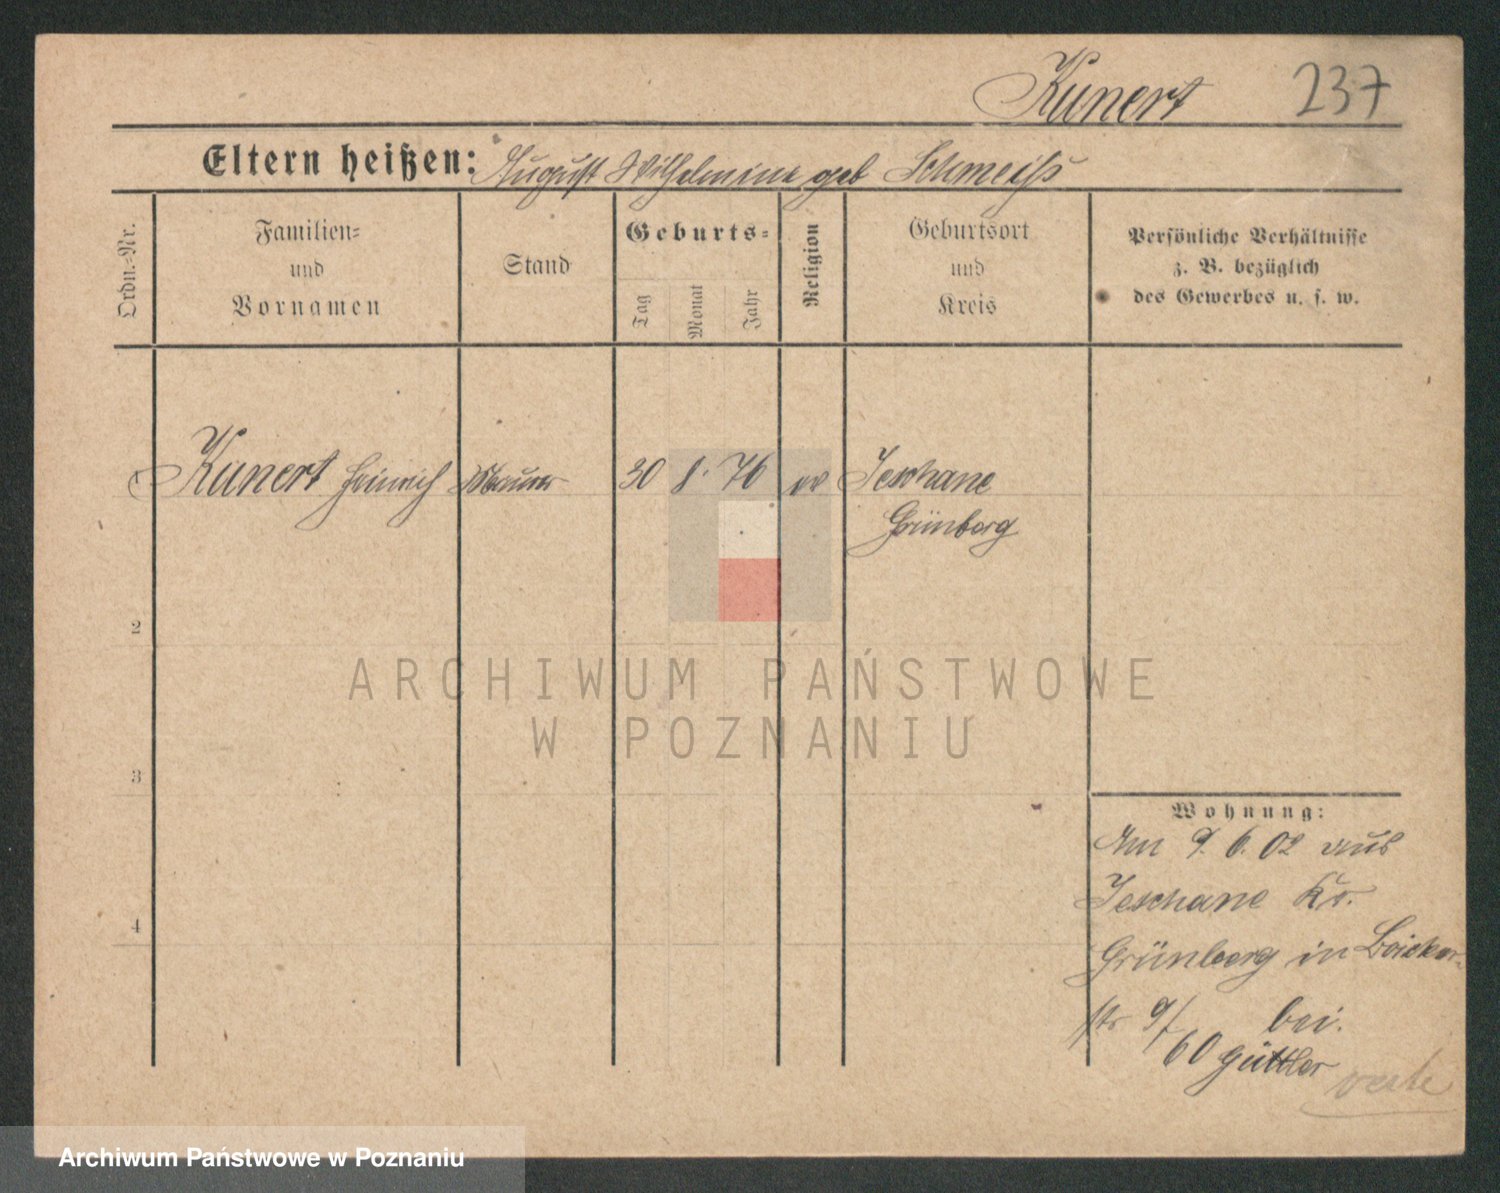 Kunert 237
Eltern heißen: August Wilhelmine geb Schmeiß
Ordn.-Nr.
Familien-
und
Vornamen
Stand
Geburts-
Tag
Monat
Jahr
Religion
Geburtsort
und
Kreis
Persönliche Verhältnisse
z. B. bezüglich
des Gewerbes u. s. w.
1 Kunert Heinrich Maurer 30 8. 76 ev Jeschane
Grünberg
2
3
4
ARCHIWUM PAŃSTWOWE
W POZNANIU
Wohnung:
Am 9. 6. 02 aus
Jeschane Kr.
Grünberg in
str 9/60 bei.
Güttler
Archiwum Państwowe w Poznaniu